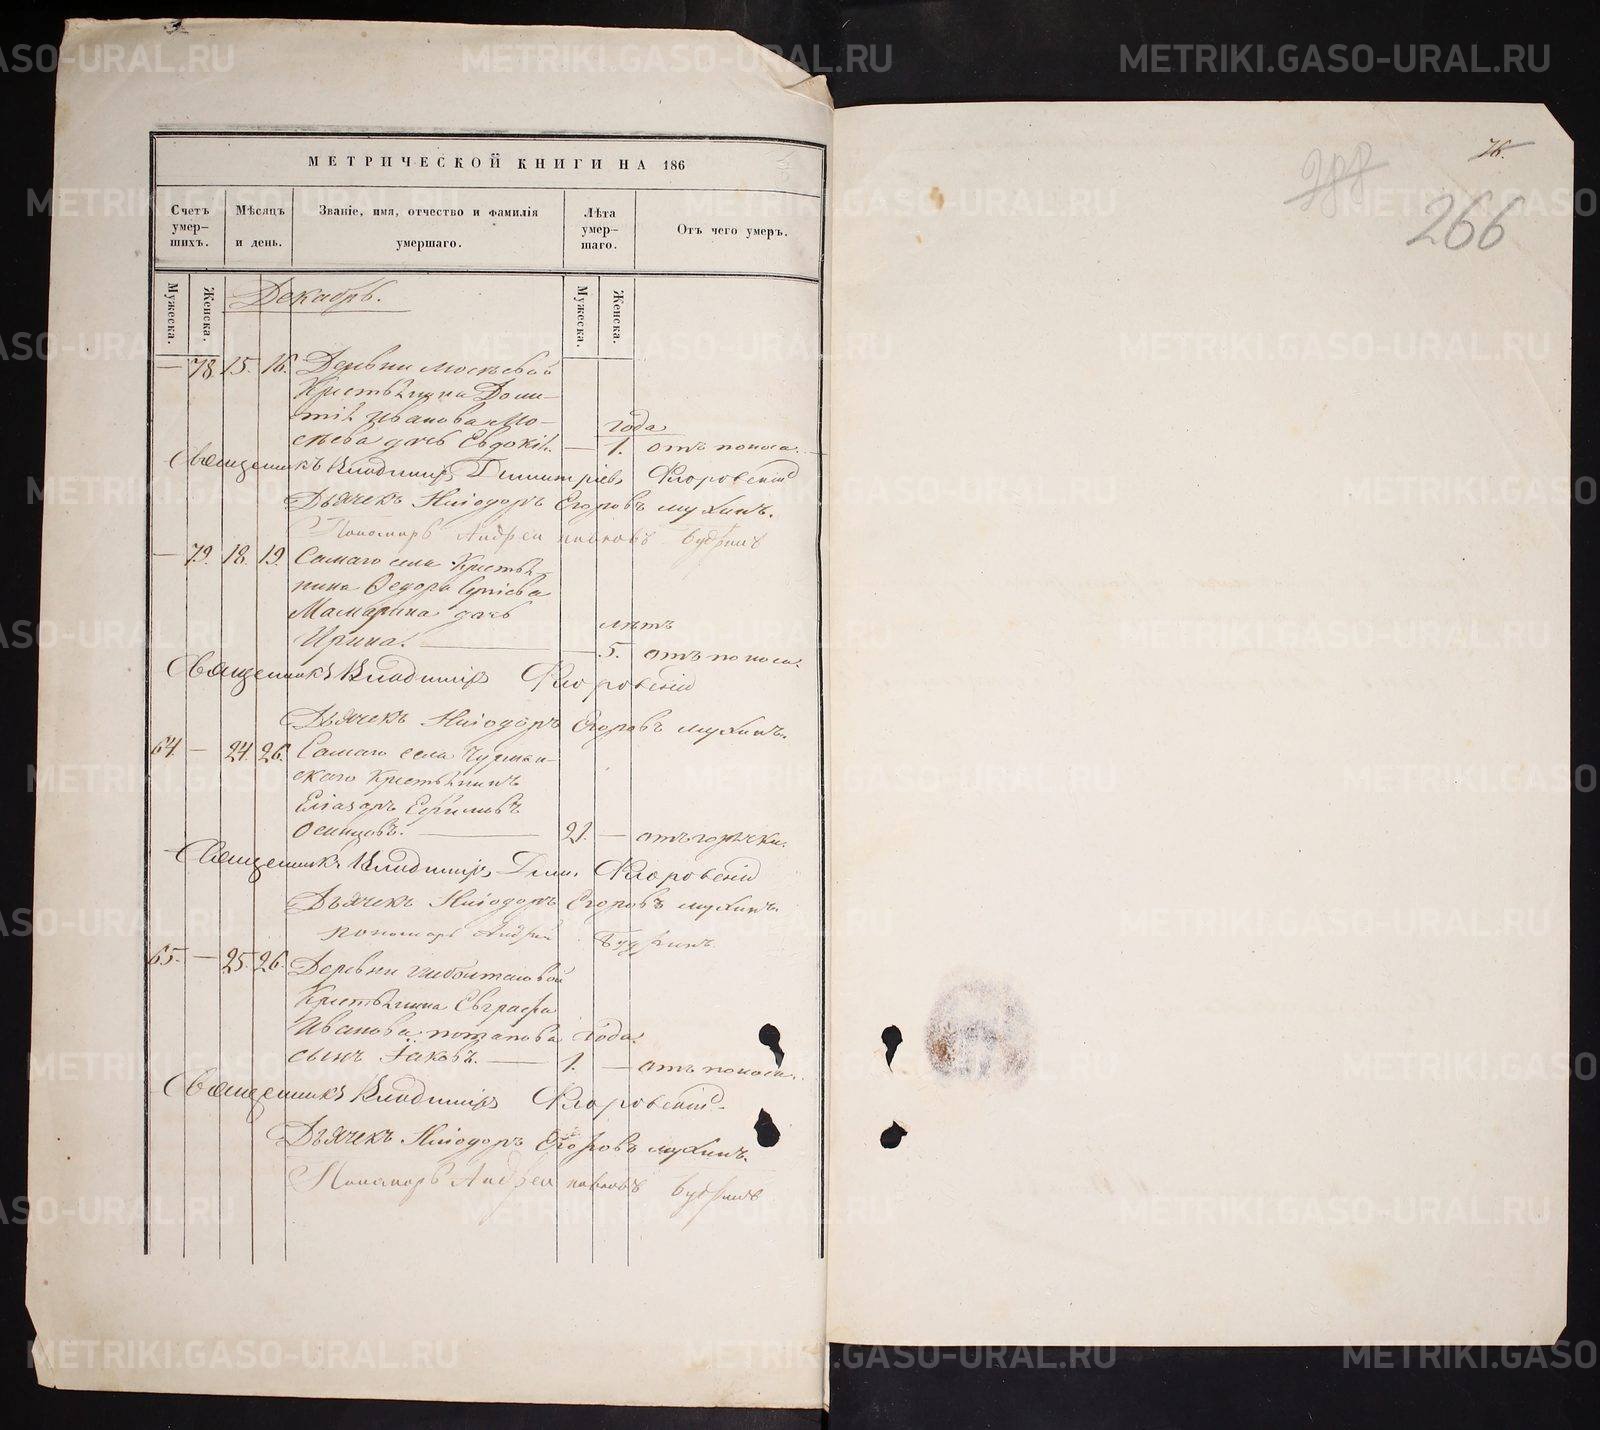 МЕТРИЧЕСКОЙ КНИГИ НА 186
Счетъ умер-шихъ.
Мѣсяцъ и день.
Званіе, имя, отчество и фамилія умершаго.
Лѣта умер-шаго.
Отъ чего умеръ.
Мужеска. Женска.
Декабрь.
Мужеска. Женска.
— 78. 15. 16. Деревни
Крестьянина Доми-
тія Иванова Мо-
года
дочь Евдокія. — 1. отъ поноса.
Священникъ Владимиръ Димитріевъ Флоровскій
Дьячекъ Егоровъ Мухинъ.
Пономарь Андрей Будринъ
— 79. 18. 19. Самаго села Крестья-
нина Ѳедора
дочь
лѣтъ
Ирина. — 5. отъ поноса.
Священникъ Владимиръ Флоровскій
Дьячекъ Егоровъ Мухинъ.
64. — 24. 26. Самаго села Чурман-
скаго Крестьянинъ
Еліазаръ Ефимовъ
Осинцовъ. — 21. — отъ горячки.
Священникъ Владимиръ Дим. Флоровскій
Дьячекъ Егоровъ Мухинъ.
пономарь Андрей Будринъ
65. — 25. 26. Деревни
Крестьянина Евграфа
Иванова Потапова года.
сынъ Іаковъ. — 1. — отъ поноса.
Священникъ Владимиръ Флоровскій
Дьячекъ Егоровъ Мухинъ.
Пономарь Андрей Будринъ
76.
266
METRIKI.GASO-URAL.RU